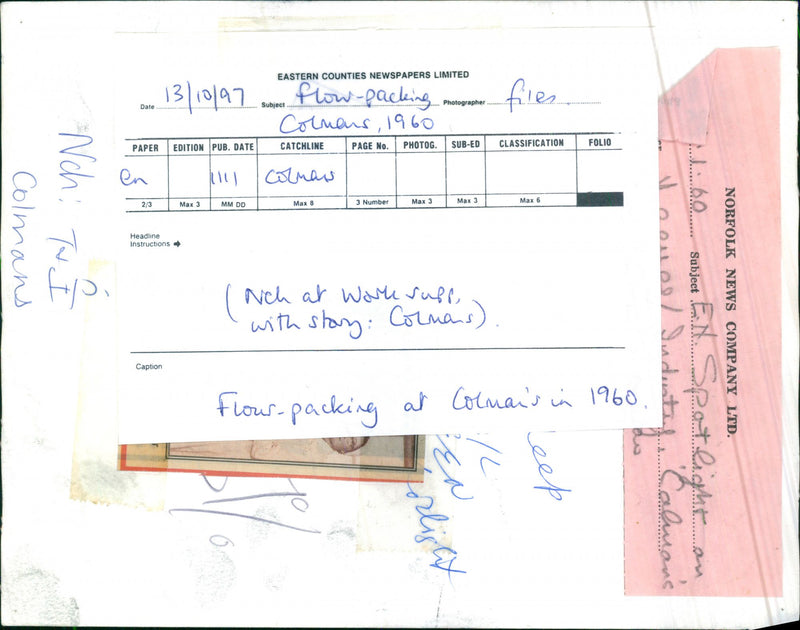 EASTERN COUNTIES NEWSPAPERS LIMITED
Date 13/10/97 Subject Flour-packing Photographer files.
Colmans, 1960
PAPER EDITION PUB. DATE CATCHLINE PAGE No. PHOTOG. SUB-ED CLASSIFICATION FOLIO
en 1111 Colmans
2/3 Max 3 MM DD Max 8 3 Number Max 3 Max 3 Max 6
Headline
Instructions
(Nch at Work supp,
with story: Colmans).
Caption
Flour-packing at Colman's in 1960.
Nch:
Colmans
NORFOLK NEWS COMPANY LTD.
Subject E.N. Spotlight on
1.60
Colman's